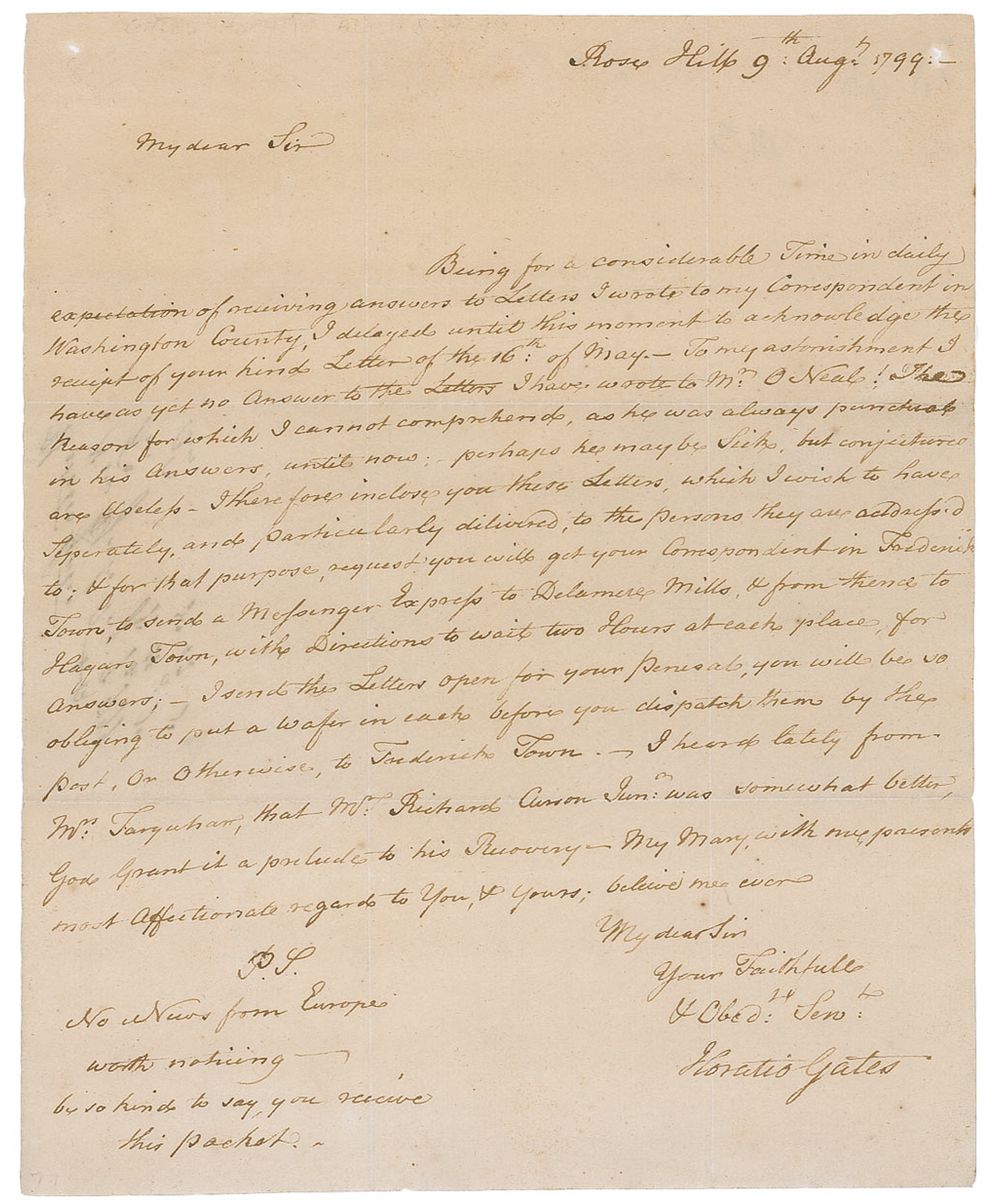 Rose Hill 9th: Augt. 1799.—
My dear Sir
Being for a considerable Time in daily
expectation of receiving answers to Letters I wrote to my Correspondent in
Washington County, I delayed until this moment to acknowledge the
receipt of your kind Letter of the 16th: of May.— To my astonishment I
have as yet no Answer to the Letters I have wrote to Mr. O Neal! The
Reason for which I cannot comprehend, as he was always punctual
in his Answers, until now;— perhaps he may be Sick, but conjectures
are Useless— I therefore inclose you these Letters, which I wish to have
Seperately, and particularly delivered, to the persons they are address'd
to; & for that purpose, request you will get your Correspondent in Frederick
Town, to send a Messenger Express to Delamere Mills, & from thence to
Hagars Town, with Directions to wait two Hours at each place, for
Answers;— I send the Letters open for your Perusal, you will be so
obliging to put a Wafer in each before you dispatch them by the
post, Or Otherwise, to Frederick Town.— I heard lately from
Mrs. Farquhar, that Mr. Richard Curson Junr: was somewhat better,
God Grant it a prelude to his Recovery— My Mary, with me, presents
most Affectionate regards to You, & Yours; believe me ever
My dear Sir
Your Faithfull
& Obedt: Servt:
Horatio Gates
P.S.
No News from Europe
worth noticing—
be so kind to say, you receive
this packet.—